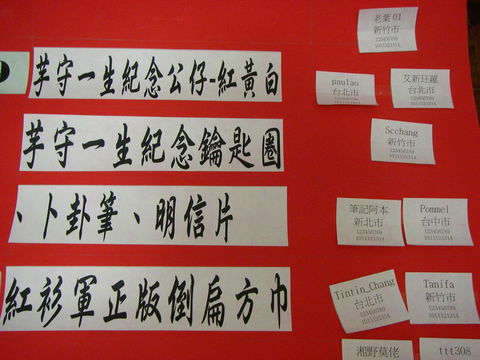 芋守一生紀念公仔-紅黃白
芋守一生紀念鑰匙圈
、卜卦筆、明信片
紅衫軍正版倒扁方巾
老葉01
新竹市
123456789
1011121314
paulao
台北市
123456789
1011121314
艾新珏羅
台北市
123456789
1011121314
Scchang
新竹市
123456789
1011121314
筆記阿本
新北市
123456789
1011121314
Pommel
台中市
123456789
1011121314
Tintin_Chang
台北市
123456789
1011121314
Tanifa
新竹市
123456789
1011121314
湘野莫佬
ttt308